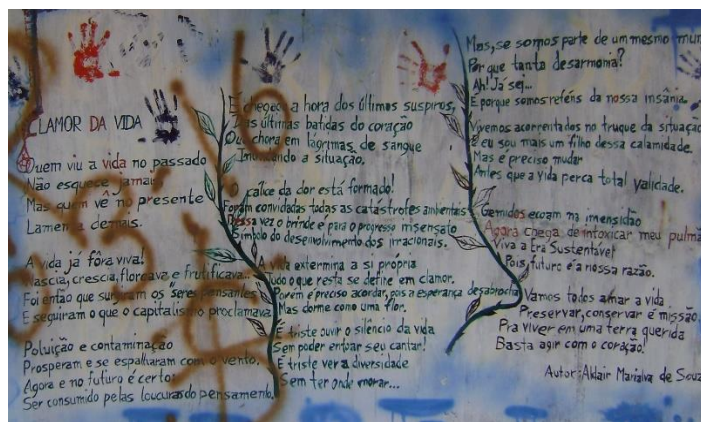 CLAMOR DA VIDA
Quem viu a vida no passado
Não esquece jamais
Mas quem vê no presente
Lamenta demais.
A vida já fôra viva!
Nascia, crescia, floreava e frutificava...
Foi então que surgiram os "seres pensantes"
E seguiram o que o capitalismo proclamava
Poluição e contaminação
Prosperam e se espalharam com o vento.
Agora e no futuro é certo:
Ser consumido pelas loucuras do pensamento.
E chegoca a hora dos últimos suspiros,
Das últimas batidas do coração
Que chora em lágrimas de sangue
a situação.
O cálice da dor está formado!
Foram convidadas todas as catástrofes ambientais
Dessa vez o brinde é para o progresso insensato
Símbolo do desenvolvimento dos irracionais.
A vida extermina a si própria
Tudo o que resta se define em clamor.
Porém é preciso acordar, pois a esperança desabrocha
Mas dorme como uma flor.
É triste ouvir o silêncio da vida
Sem poder entoar seu cantar!
É triste ver a diversidade
Sem ter onde morar...
Mas, se somos parte de um mesmo mun
Por que tanta desarmonia?
Ah! Já sei...
É porque somos reféns da nossa insânia.
Vivemos acorrentados no truque da situação
E eu sou mais um filho dessa calamidade
Mas é preciso mudar
Antes que a vida perca total validade.
Gemidos ecoam na imensidão
Agora chega de intoxicar meu pulmã
Viva a Era Sustentável
Pois, futuro é a nossa razão.
Vamos todos amar a vida
Preservar, conservar é missão
Pra viver em uma terra querida
Basta agir com o coração!
Autor: Aldair Marialva de Souz